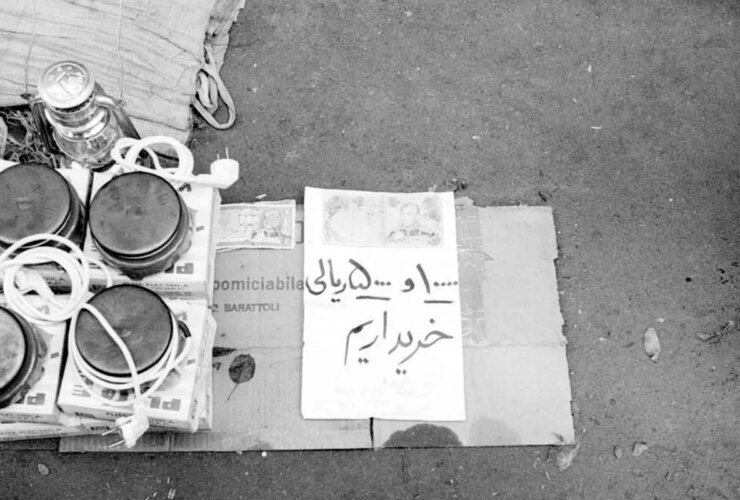 ۱۰۰۰۰ و ۵۰۰۰ ریالی
خریداریم
omiciabile
BARATTOLI